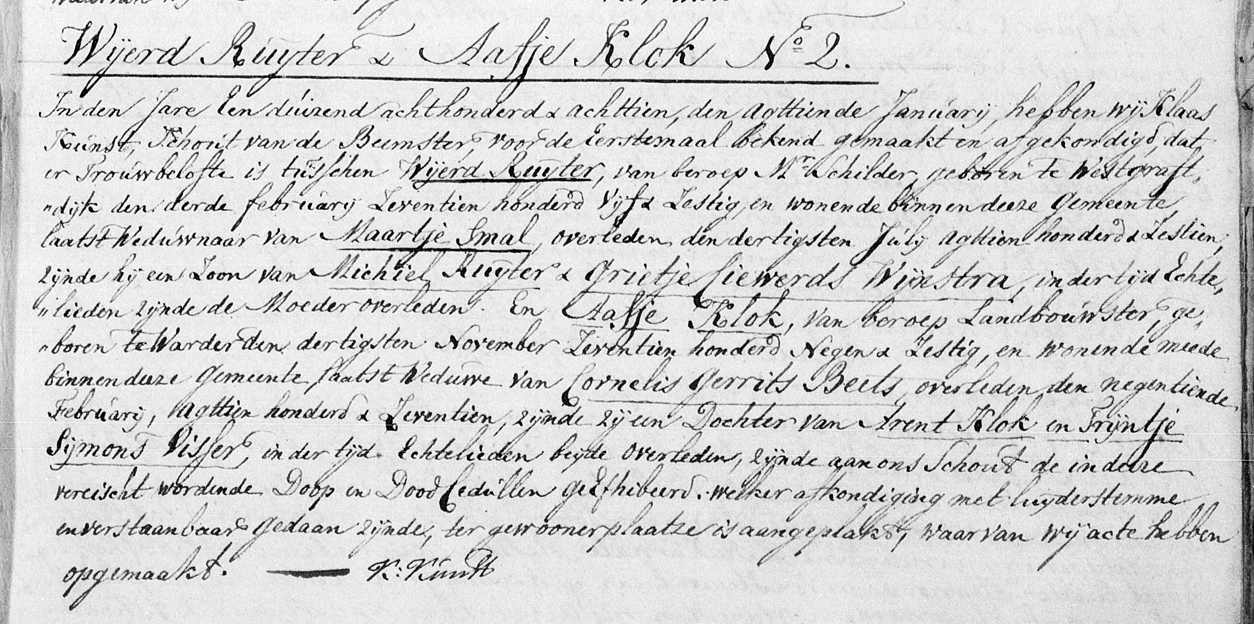 Wijerd Ruyter & Aafje Klok No 2.
In den Jare Een duizend achthonderd & achttien, den agttiende Januarij, hebben wij Klaas
Kunst, Schout van de Beemster, voor de Eerstemaal bekend gemaakt en afgekondigd, dat,
er Trouwbelofte is tusschen Wijerd Ruyter, van beroep Mr. Schilder, geboren te Westgraft,
"dijk den derde february Zeventien honderd Vijf & Zestig, en wonende binnen deeze Gemeente
laatst Weduwnaar van Maartje Smal, overleden den dertigsten July agttien honderd & Zestien,
zijnde hij een Zoon van Michiel Ruyter & Grietje Siewerds Wijnstra, in der tijd Echte,
"lieden zijnde de Moeder overleden. En Aafje Klok, van beroep Landbouwster, ge"
"boren te Warder den dertigsten November Zeventien honderd Negen & Zestig, en wonende meede
binnen deeze Gemeente, laatst Weduwe van Cornelis Gerrits Beets, overleden den negentiende
February, agttien honderd & Zeventien, zijnde zij een Dochter van Arent Klok en Trijntje
Sijmons Visser, in der tijd Echtelieden beyde overleden, zijnde aan ons Schout de in deeze
vereischt wordende Doop en Dood Cedullen geExhibeerd. welker afkondiging met luyder stemme
en verstaanbaar gedaan zijnde, ter gewooner plaatze is aangeplakt, waar van wij acte hebben
opgemaakt. — K: Kunst